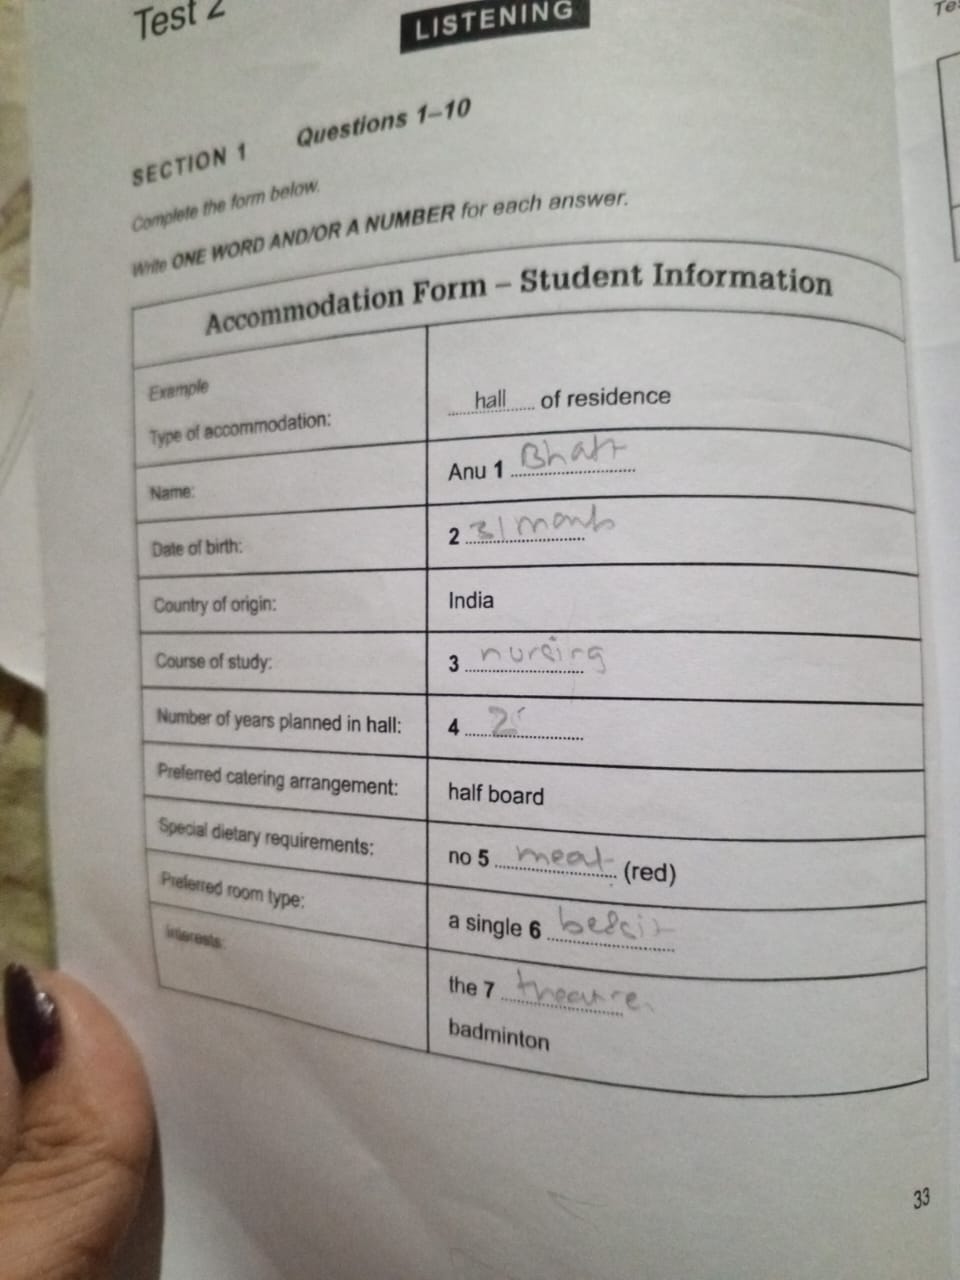 Test 2
LISTENING
SECTION 1 Questions 1–10
Complete the form below.
Write ONE WORD AND/OR A NUMBER for each answer.
Accommodation Form – Student Information
Example
Type of accommodation: hall of residence
Name: Anu 1 Bhatt
Date of birth: 2 31
Country of origin: India
Course of study: 3 nursing
Number of years planned in hall: 4 2
Preferred catering arrangement: half board
Special dietary requirements: no 5 meat (red)
Preferred room type: a single 6
Interests: the 7
badminton
33